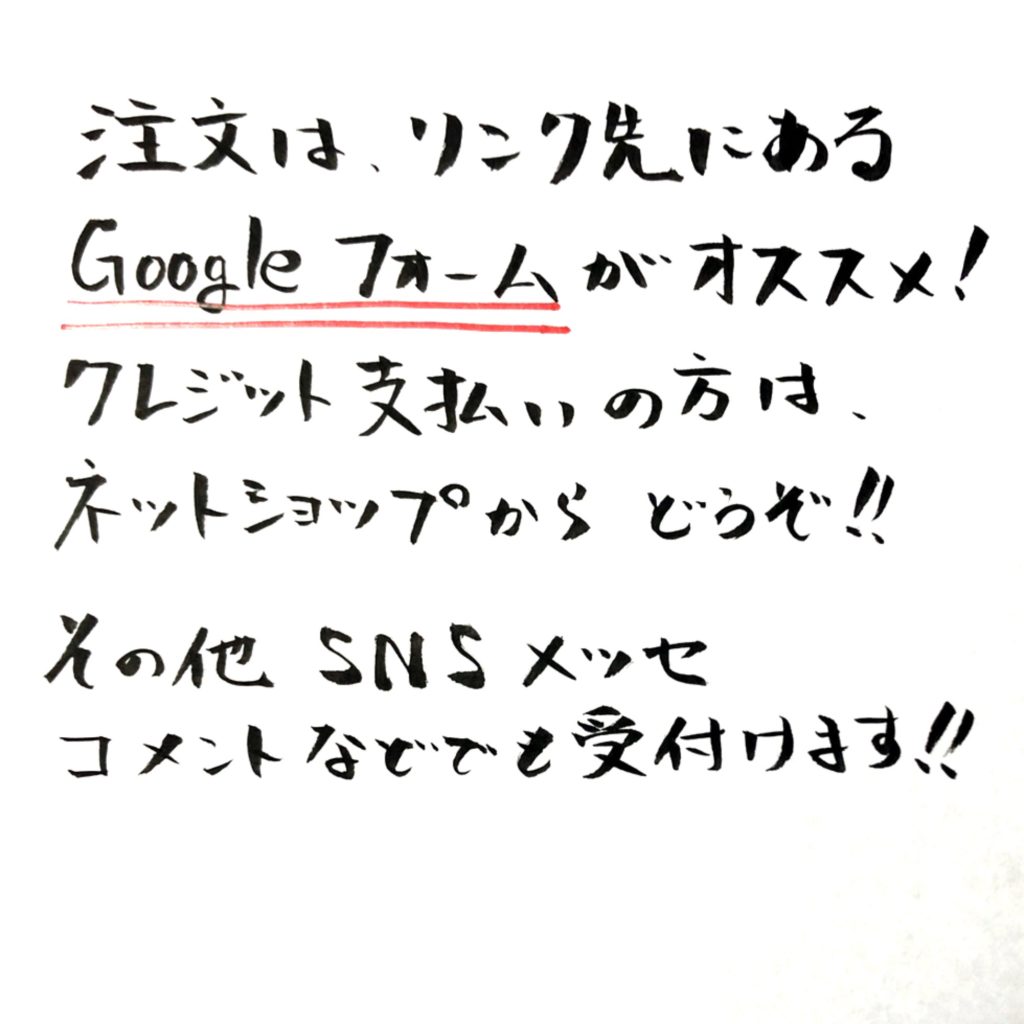 注文は、リンク先にある
Google フォームがオススメ!
クレジット支払いの方は、
ネットショップから どうぞ!!
その他 SNS メッセ
コメントなどでも受付けます!!